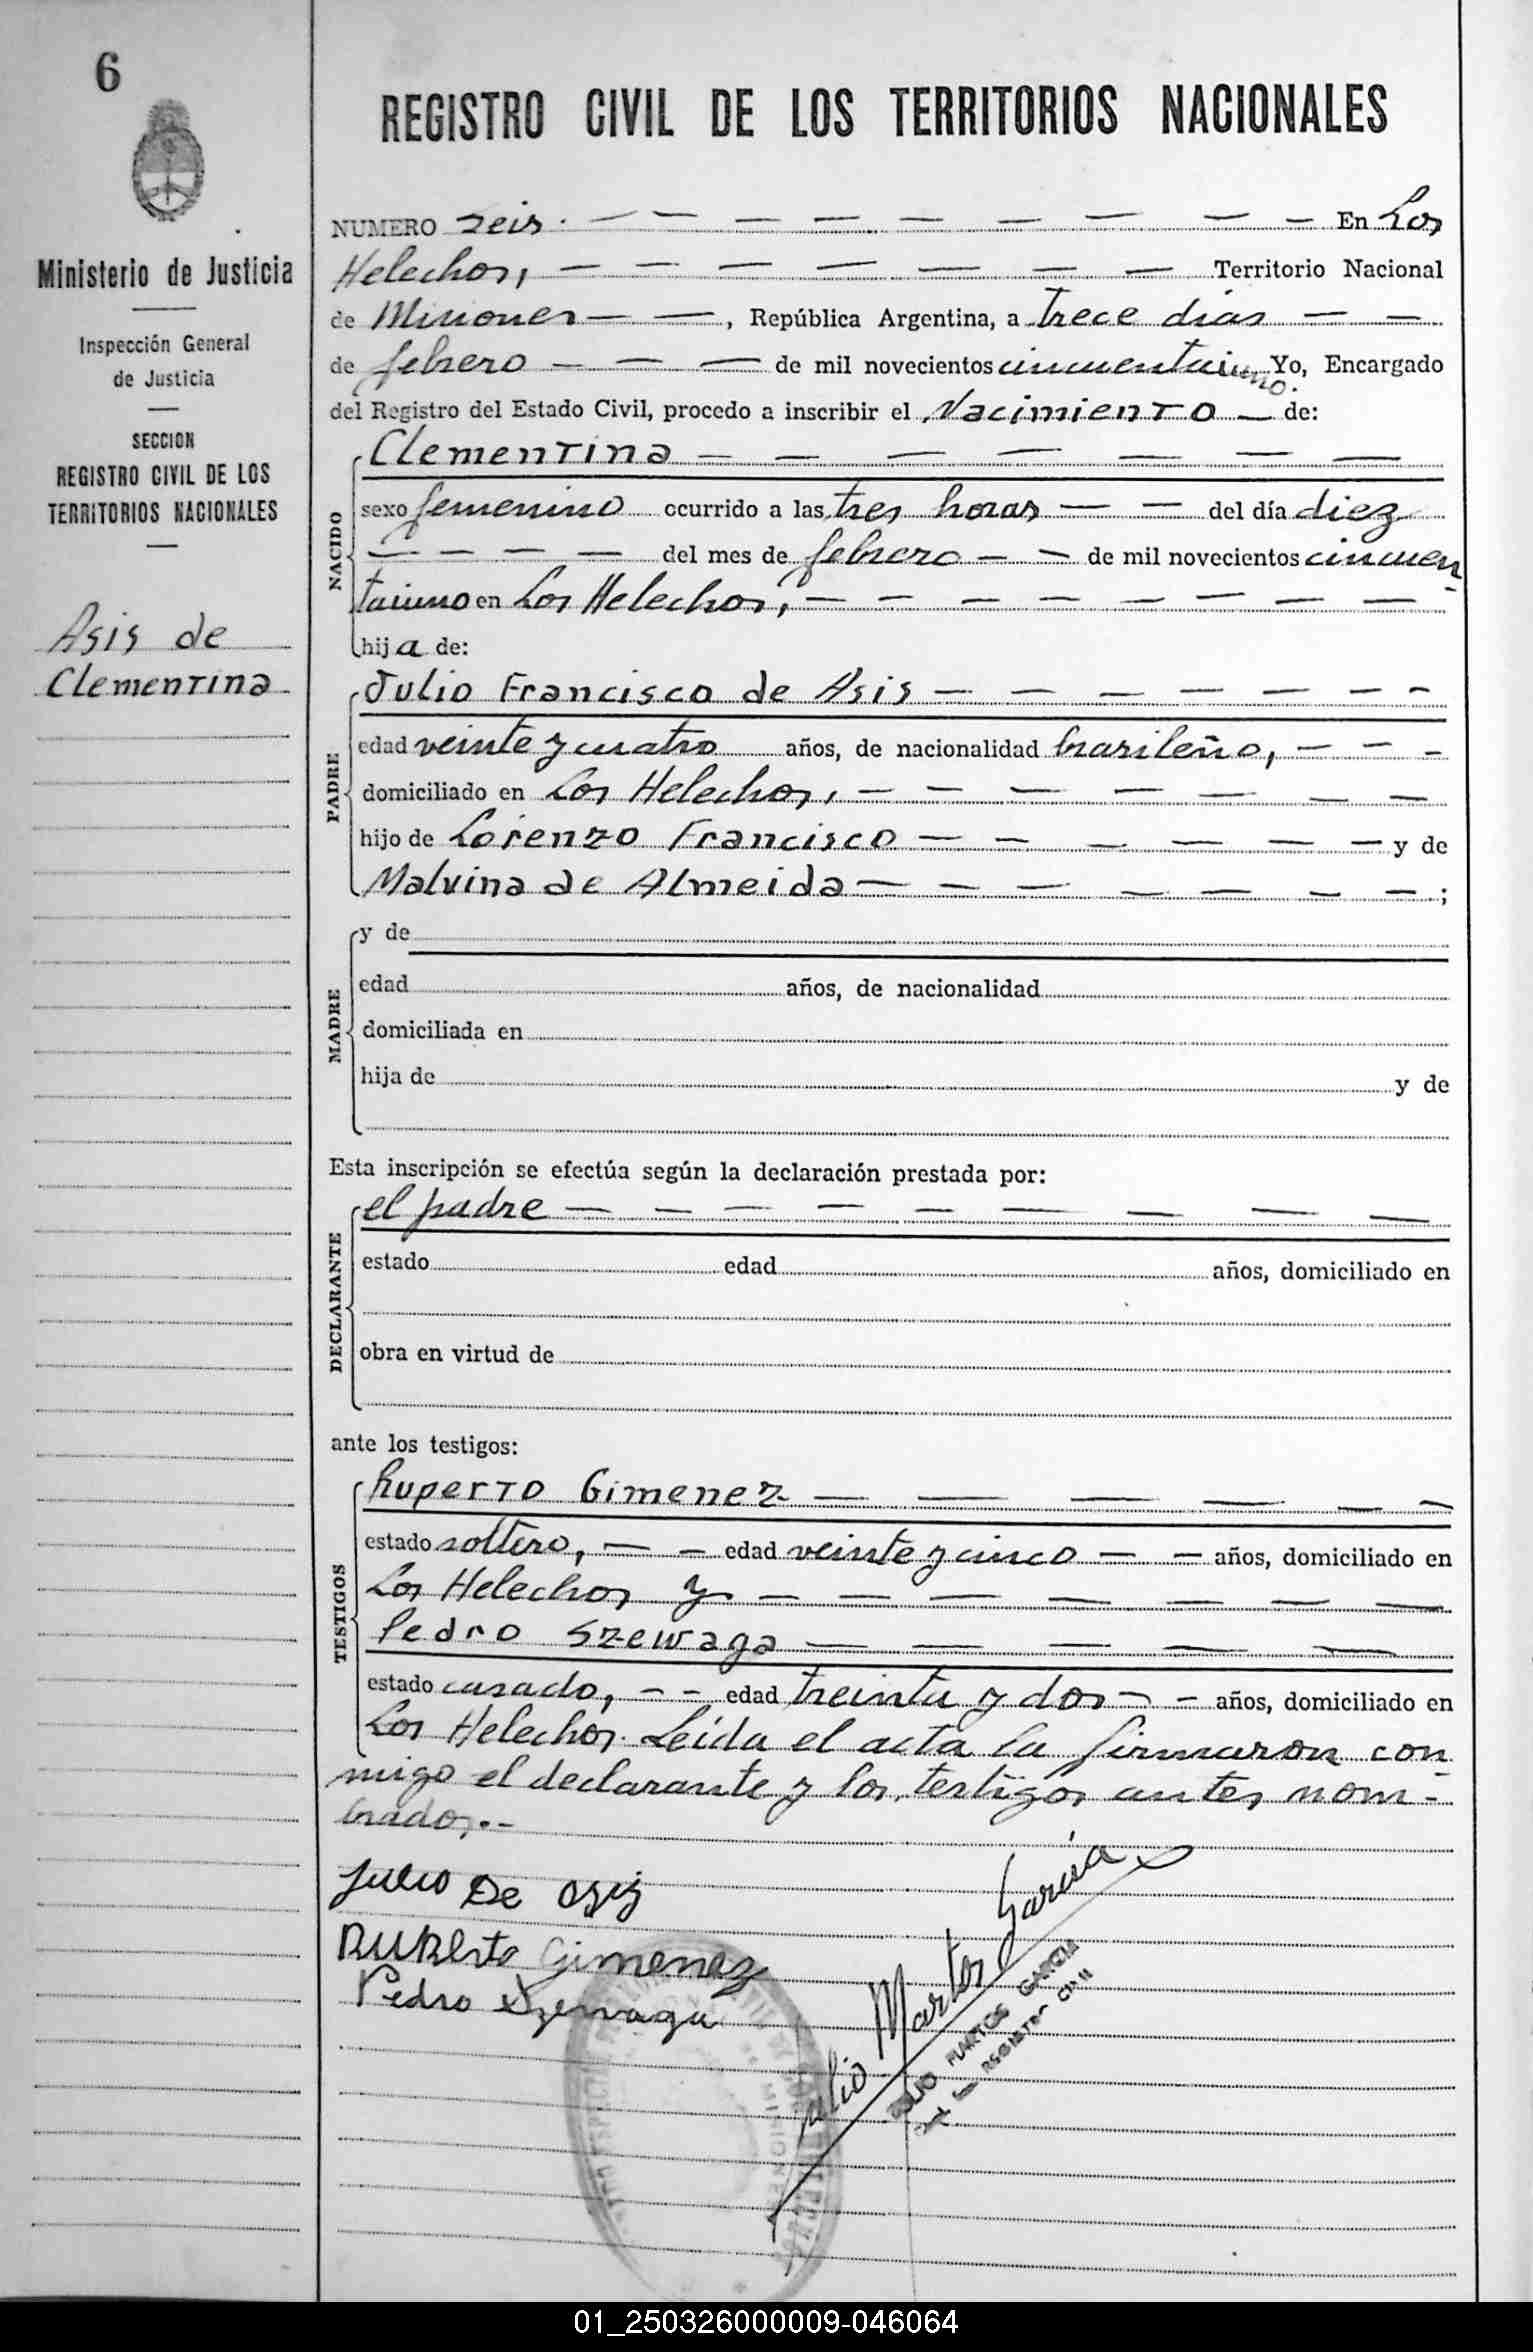 6
Ministerio de Justicia
Inspección General
de Justicia
SECCION
REGISTRO CIVIL DE LOS
TERRITORIOS NACIONALES
Asis de
Clementina
REGISTRO CIVIL DE LOS TERRITORIOS NACIONALES
NUMERO seis. — — — — — — — — — En Los
Helechos, — — — — — — — Territorio Nacional
de Misiones — —, República Argentina, a trece días — —
de febrero — — — de mil novecientos cincuentaiuno. Yo, Encargado
del Registro del Estado Civil, procedo a inscribir el Nacimiento — de:
NACIDO
Clementina — — — — — — —
sexo femenino ocurrido a las tres horas — — del día diez
— — — — del mes de febrero — — de mil novecientos cincuen
taiuno en Los Helechos, — — — — — — — — -
hija de:
PADRE
Julio Francisco de Asis — — — — — — -
edad veinte y cuatro años, de nacionalidad brasileño, — — -
domiciliado en Los Helechos, — — — — — — —
hijo de Lorenzo Francisco — — — — — — y de
Malvina de Almeida — — — — — — — ;
MADRE
y de
edad años, de nacionalidad
domiciliada en
hija de y de
Esta inscripción se efectúa según la declaración prestada por:
DECLARANTE
el padre — — — — — — — — —
estado edad años, domiciliado en
obra en virtud de
ante los testigos:
TESTIGOS
Ruperto Gimenez — — — — — -
estado soltero, — — edad veinte y cinco — — años, domiciliado en
Los Helechos y — — — — — — —
Pedro Szewaga — — — — —
estado casado, - - edad treinta y dos - - años, domiciliado en
Los Helechos. Leída el acta la firmaron con
migo el declarante y los testigos antes nom-
brados.-
Julio De Asis
Ruperto Gimenez
Pedro Szewaga
Julio Martos Garcia
JULIO MARTOS GARCIA
MISIONES
01_250326000009-046064